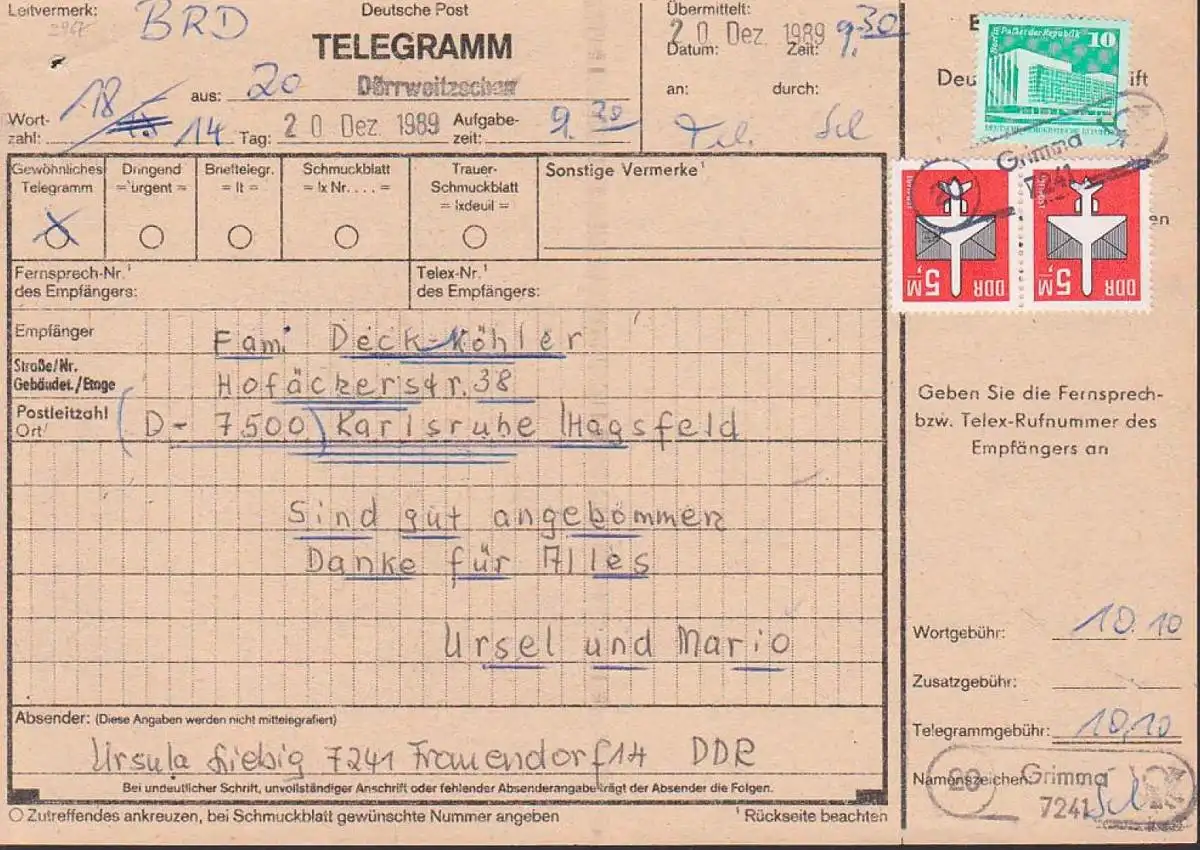 Leitvermerk: BRD
Deutsche Post
TELEGRAMM
aus: 20 Dörrweitzschen
Wort-
zahl: 18 15 14 Tag: 20 Dez 1989 Aufgabe-
zeit: 9.30
Übermittelt:
20 Dez 1989 9.30
Datum: Zeit:
an: durch:
Tel.
Gewöhnliches
Telegramm
Dringend
= urgent =
Brieftelegr.
= lt =
Schmuckblatt
= lx Nr. . . . . =
Trauer-
Schmuckblatt
= lxdeuil =
Sonstige Vermerke¹
Fernsprech-Nr.¹
des Empfängers:
Telex-Nr.¹
des Empfängers:
Empfänger Fam. Deck-Köhler
Straße/Nr.
Gebäudet./Etage Hofäckerstr. 38
Postleitzahl
Ort (D- 7500) Karlsruhe Hagsfeld
Sind gut angekommen
Danke für Alles
Ursel und Mario
Absender: (Diese Angaben werden nicht mittelegrafiert)
Ursula Liebig 7241 Frauendorf 14 DDR
Bei undeutlicher Schrift, unvollständiger Anschrift oder fehlender Absenderangabe trägt der Absender die Folgen.
Zutreffendes ankreuzen, bei Schmuckblatt gewünschte Nummer angeben
¹ Rückseite beachten
Berlin Palast der Republik 10
DEUTSCHE DEMOKRATISCHE REPUBLIK
20 Grimma
7241
DDR 5,M
DDR 5,M
Geben Sie die Fernsprech-
bzw. Telex-Rufnummer des
Empfängers an
Wortgebühr: 10.10
Zusatzgebühr:
Telegrammgebühr: 10,10
Namenszeichen:
20 Grimma
7241